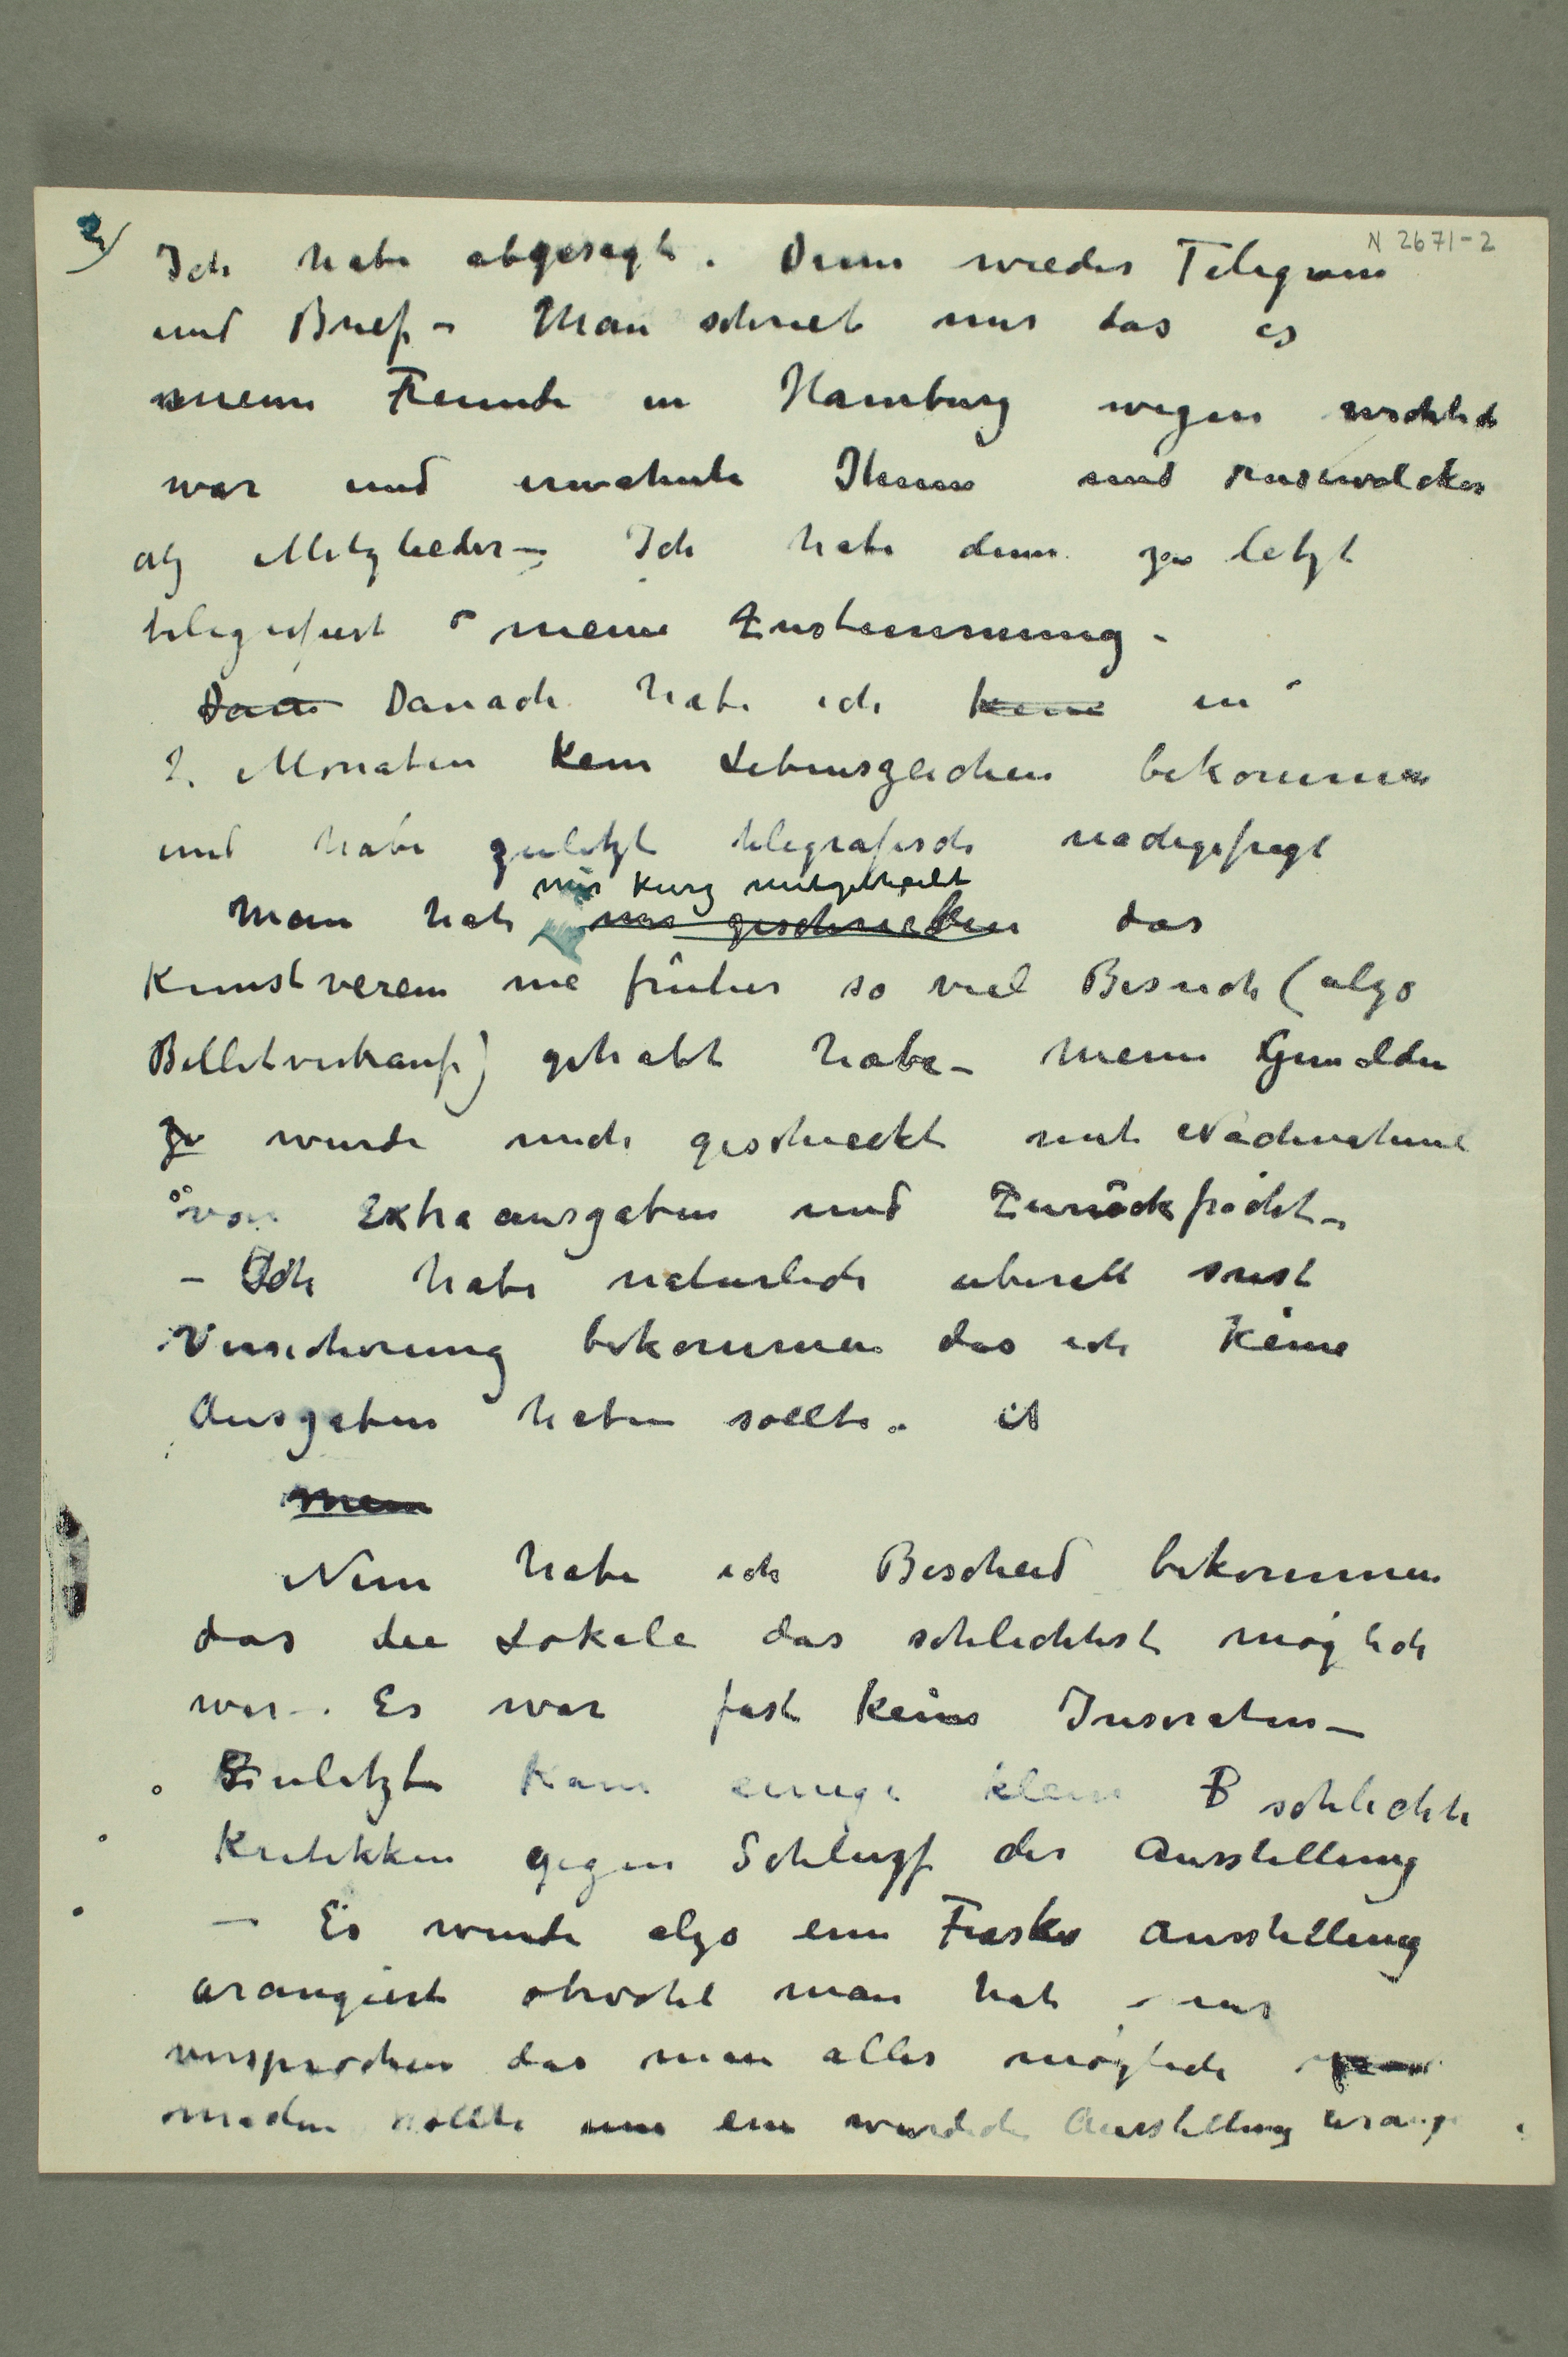 2)
N 2671-2
Ich habe abgesagt. Dann wieder Telegram
und Brief – Man schrieb mir das es
meine Freunde in Hamburg wegen
war und erwähnte Ihnen und
als Mitglieder – Ich habe dann zu letzt
telegrafiert meine Zustimmung –
Dann Danach habe ich keine in
2. Monaten kein Lebenszeichen bekommen
und habe zuletzt telegrafisch nachgefragt
mir kurz mitgetheilt
Man hat mir geschrieben das
Kunstverein nie früher so viel Besuch (also
Billetverkauf) gehabt habe – meine Gemälden
zu wurde mich geschieckt mit Nachnahme
von Extraausgaben und Zurückfracht –
– Ich habe naturlich uberall sust
Versicherung bekommen das ich keine
Ausgaben haben sollte.
mein
Nun habe ich Bescheid bekommen
das die Lokale das schlechtest möglich
war –. Es war fast keine Inseraten –
Zuletzt kam einige klein B schlechte
Kritikken gegen Schlusz der Ausstellung
– Es wurde also ein Fiasko Ausstellung
arangiert obwohl man hat – mir
versprochen das man alles möglich
machen sollte um ein wurdich Ausstellung